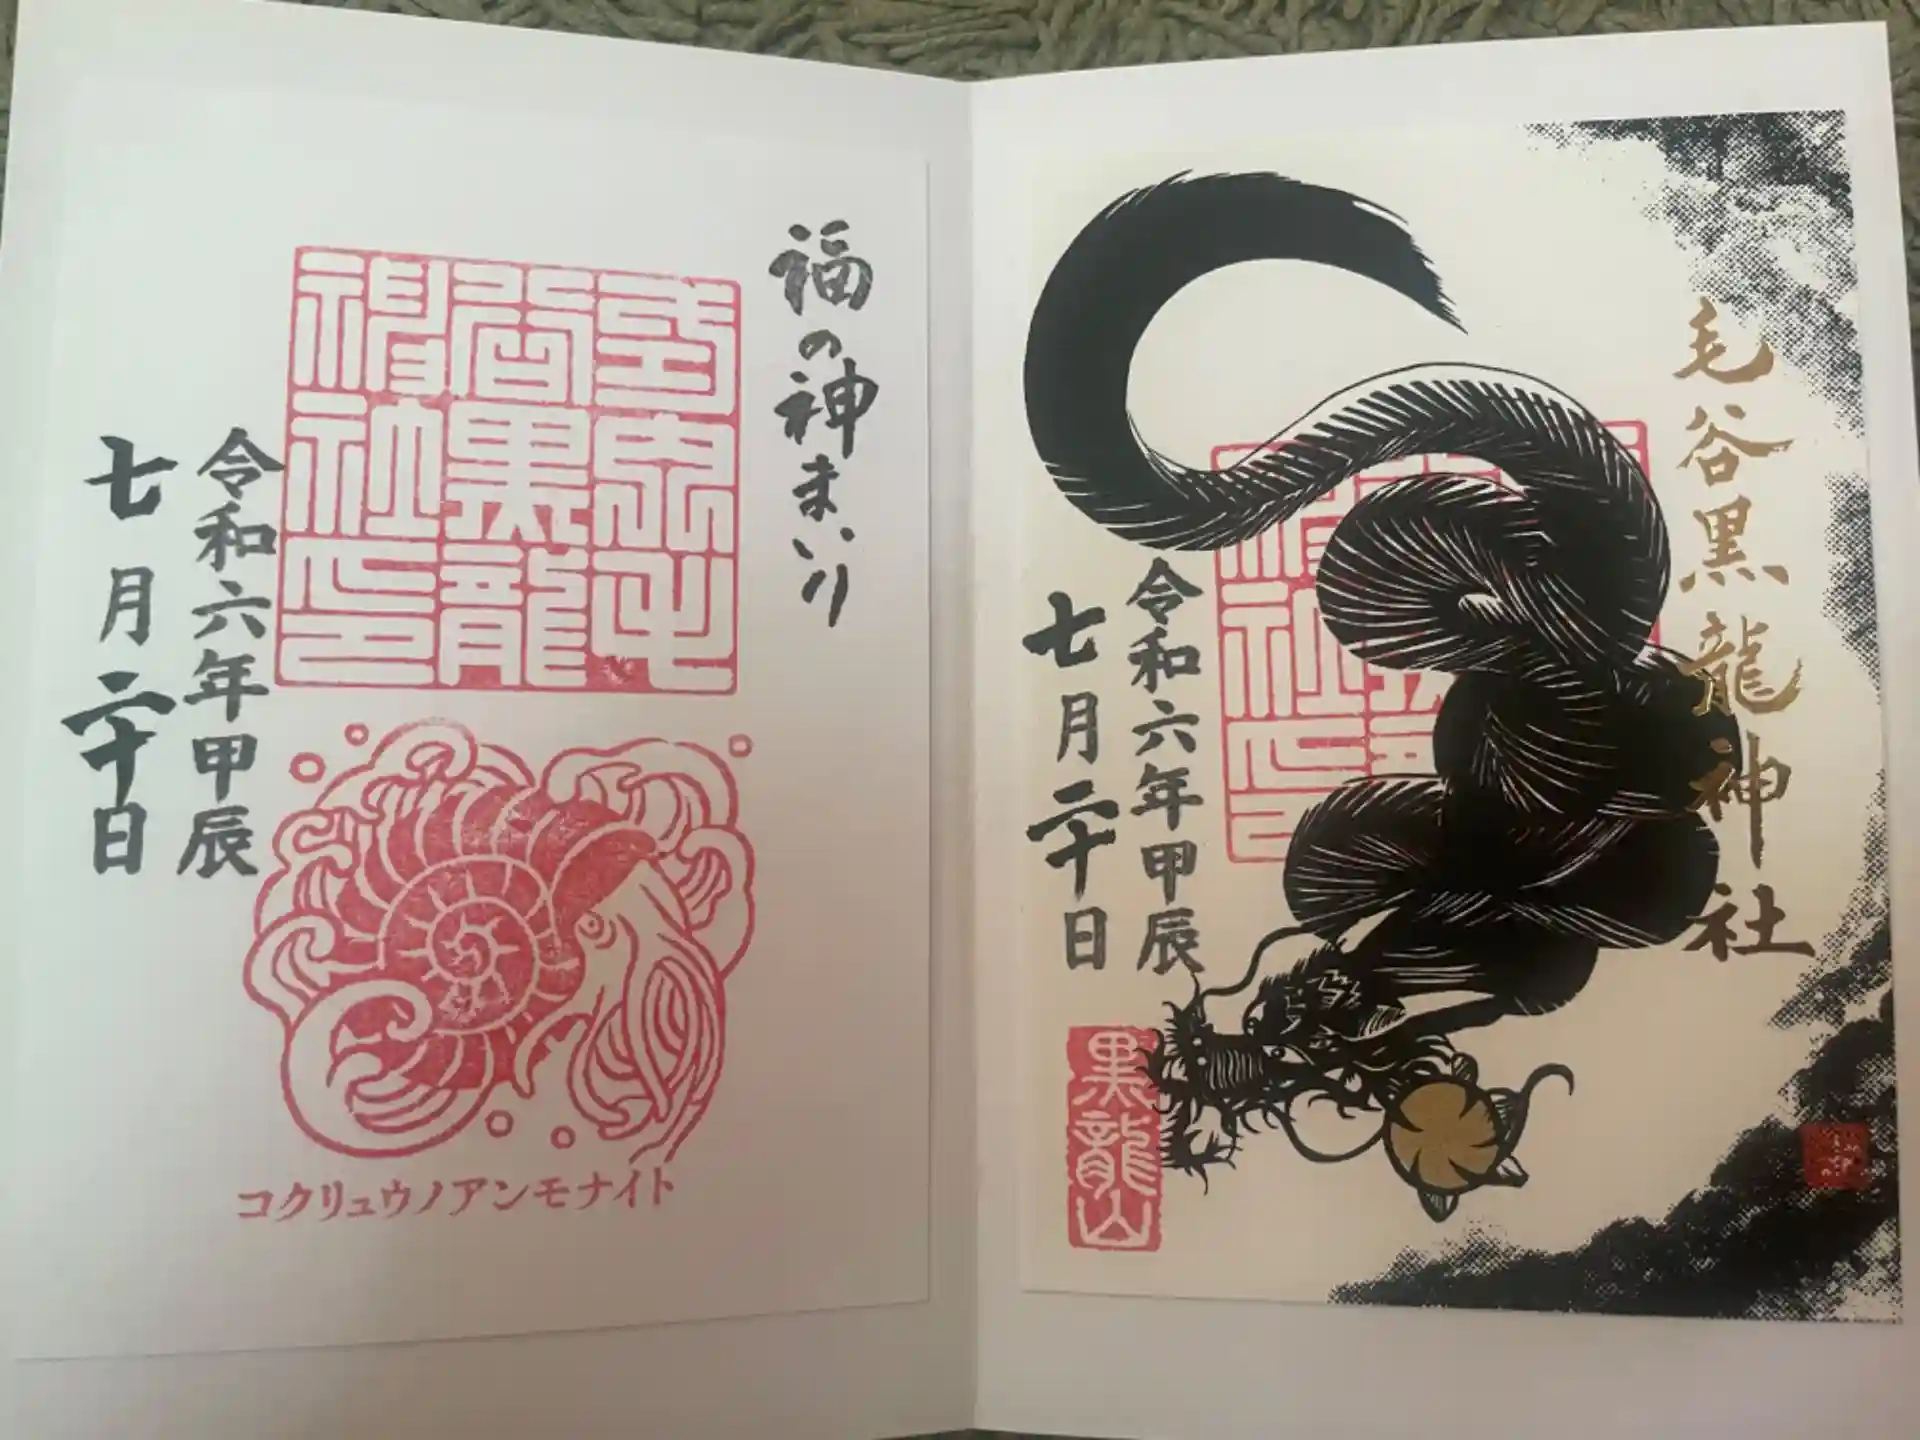 毛谷黒龍神社
神社印
令和六年甲辰
七月二十日
黒龍山
福の神まいり
毛
谷黒龍
神社印
令和六年甲辰
七月二十日
コクリュウノアンモナイト